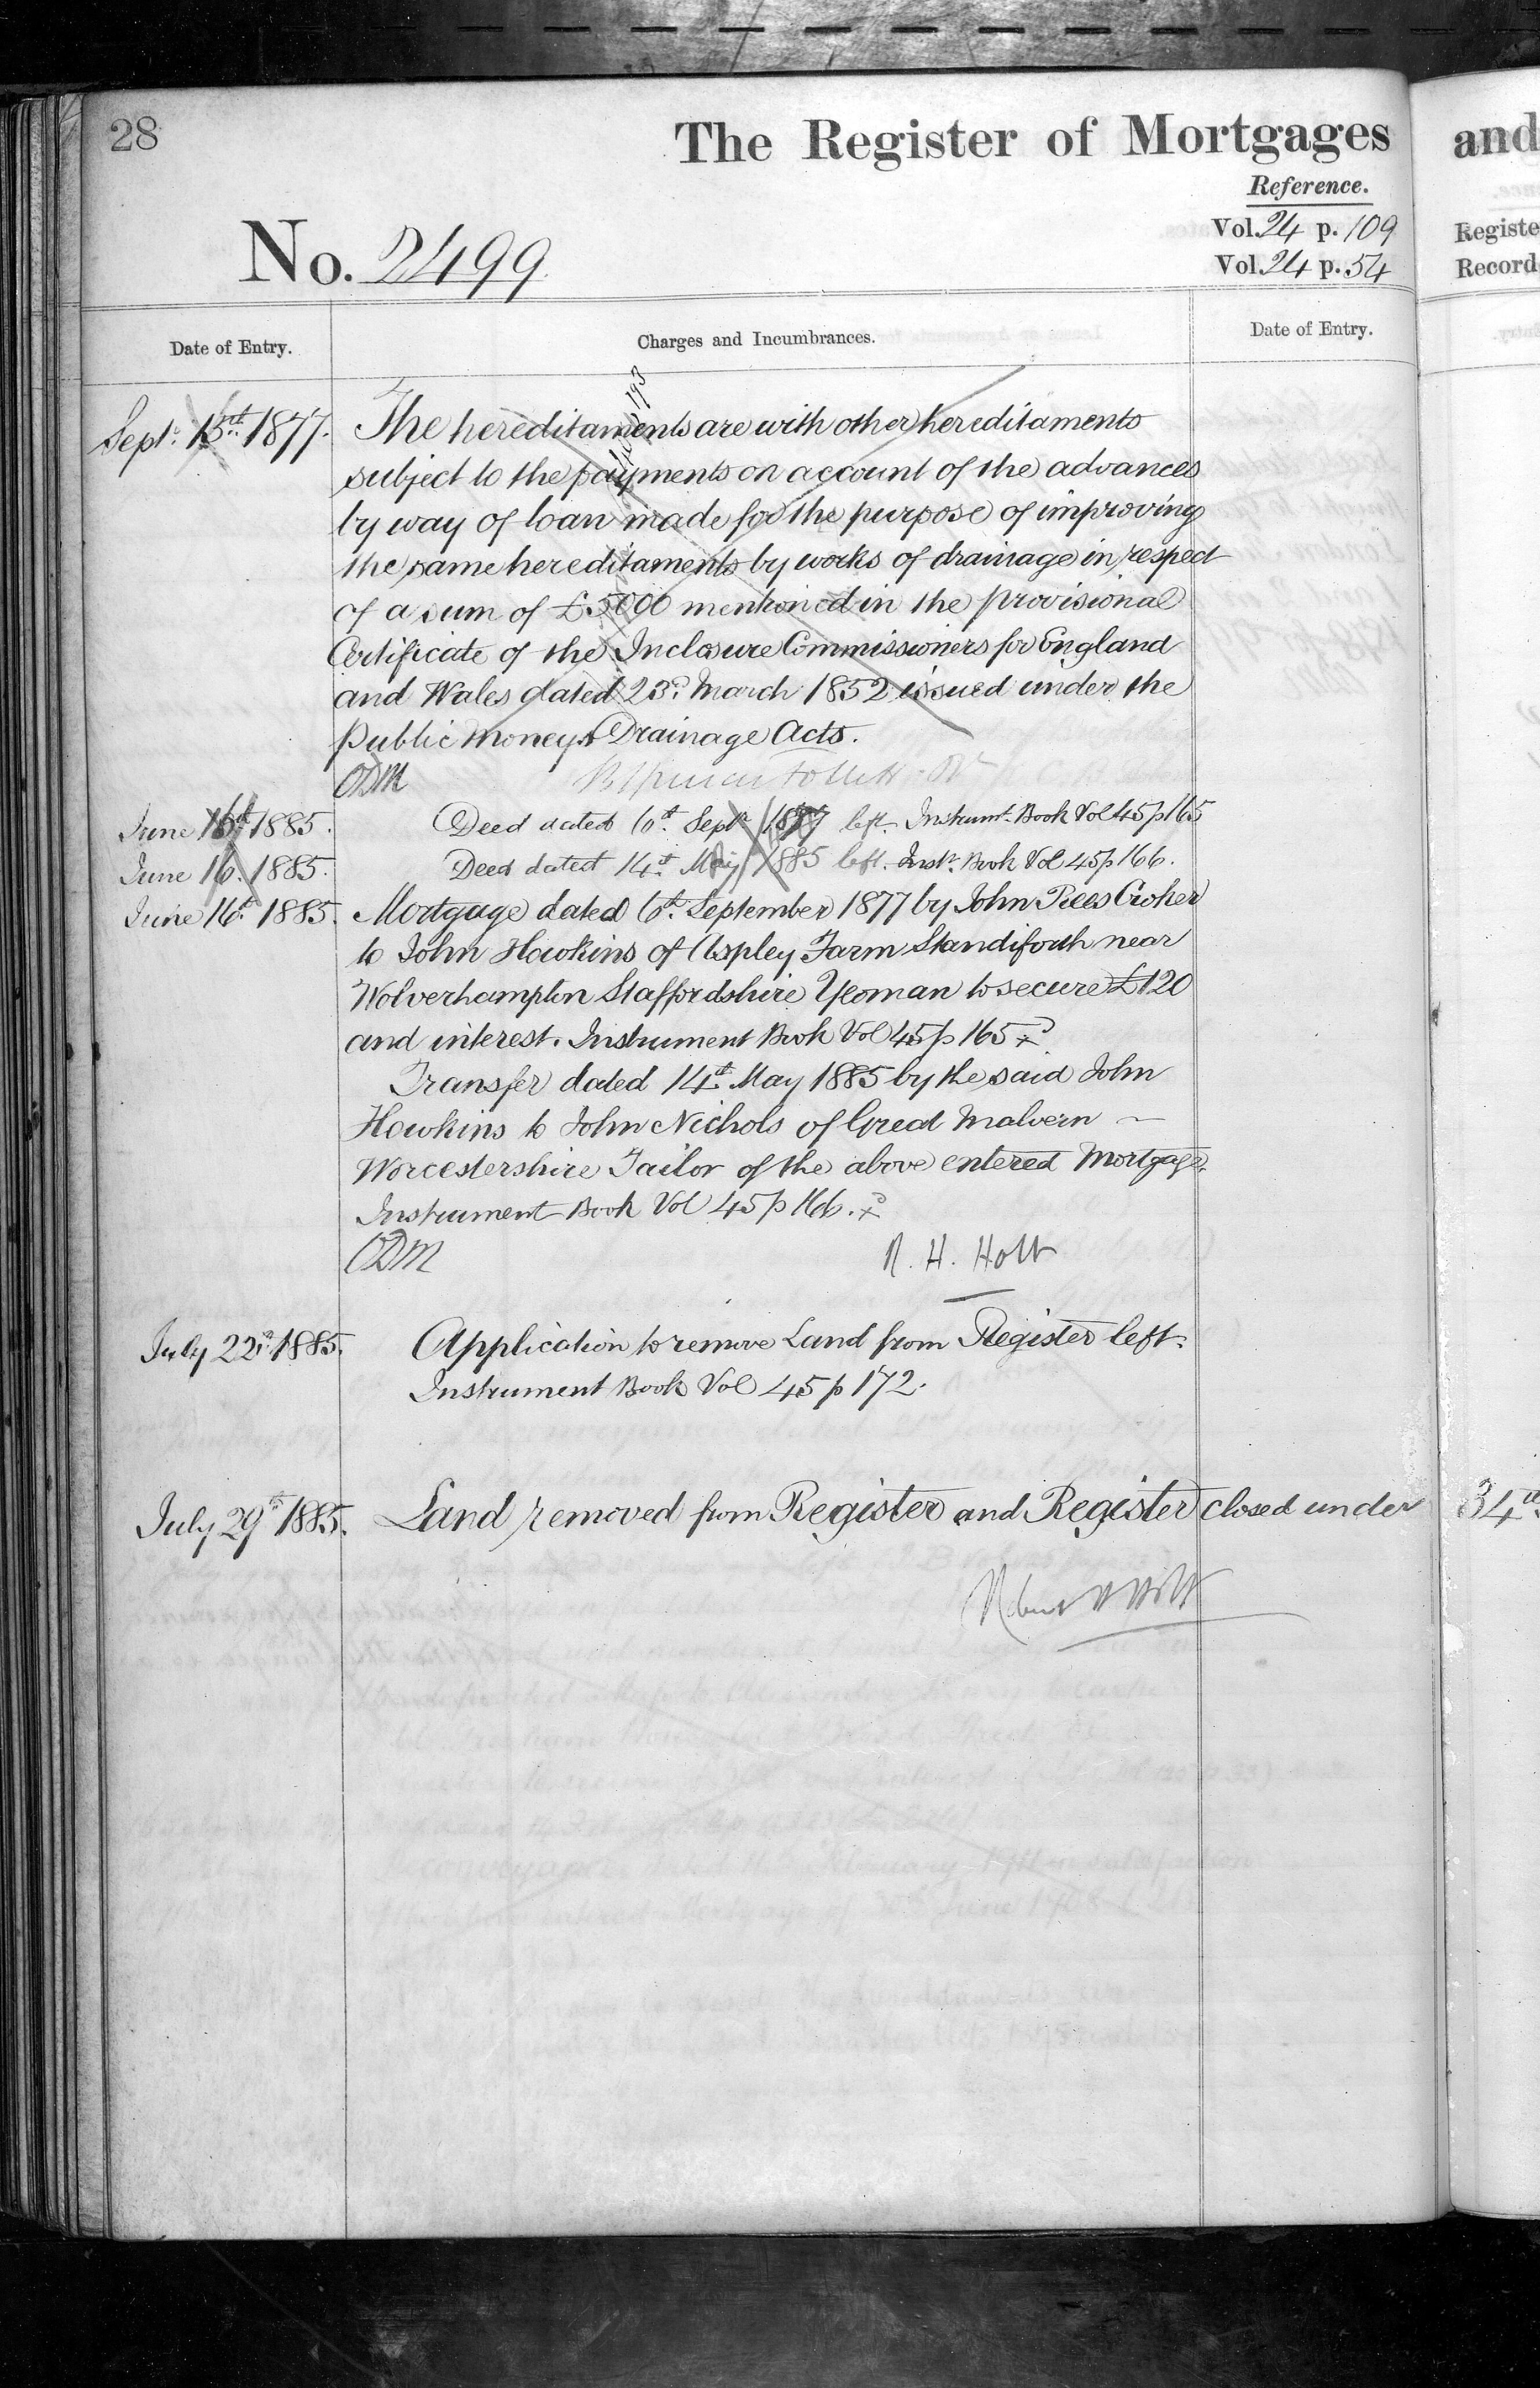 28
The Register of Mortgages
Reference.
Vol. 24 p. 109
Vol. 24 p. 54
No. 2499
Date of Entry.
Charges and Incumbrances.
Date of Entry.
Septr. 13th 1877. The hereditaments are with other hereditaments
subject to the payments on account of the advances
by way of loan made for the purpose of improving
the same hereditaments by works of drainage in respect
of a sum of £5000 mentioned in the provisional
Certificate of the Inclosure Commissioners for England
and Wales dated 23d. March 1852 issued under the
Public Moneys Drainage Acts.
ODM
June 16th 1885. Deed dated 6th. Septr. 1877 left. Instrumt. Book Vol 45 p 165
June 16. 1885. Deed dated 14th. May 1885 left. Instt. Book Vol 45 p 166.
June 16th 1885. Mortgage dated 6th. September 1877 by John Rees Croker
to John Howkins of Aspley Farm Standiforth near
Wolverhampton Staffordshire Yeoman to secure £120
and interest. Instrument Book Vol 45 p 165
Transfer dated 14th. May 1885 by the said John
Howkins to John Nichols of Great Malvern ~
Worcestershire Tailor of the above entered Mortgage.
Instrument Book Vol 45 p 166.
ODM
R. H. Holt
July 22d. 1885. Application to remove Land from Register left.
Instrument Book Vol 45 p 172.
July 29th 1885. Land removed from Register and Register closed under 34th
Robert H Holt
and
Registe
Record